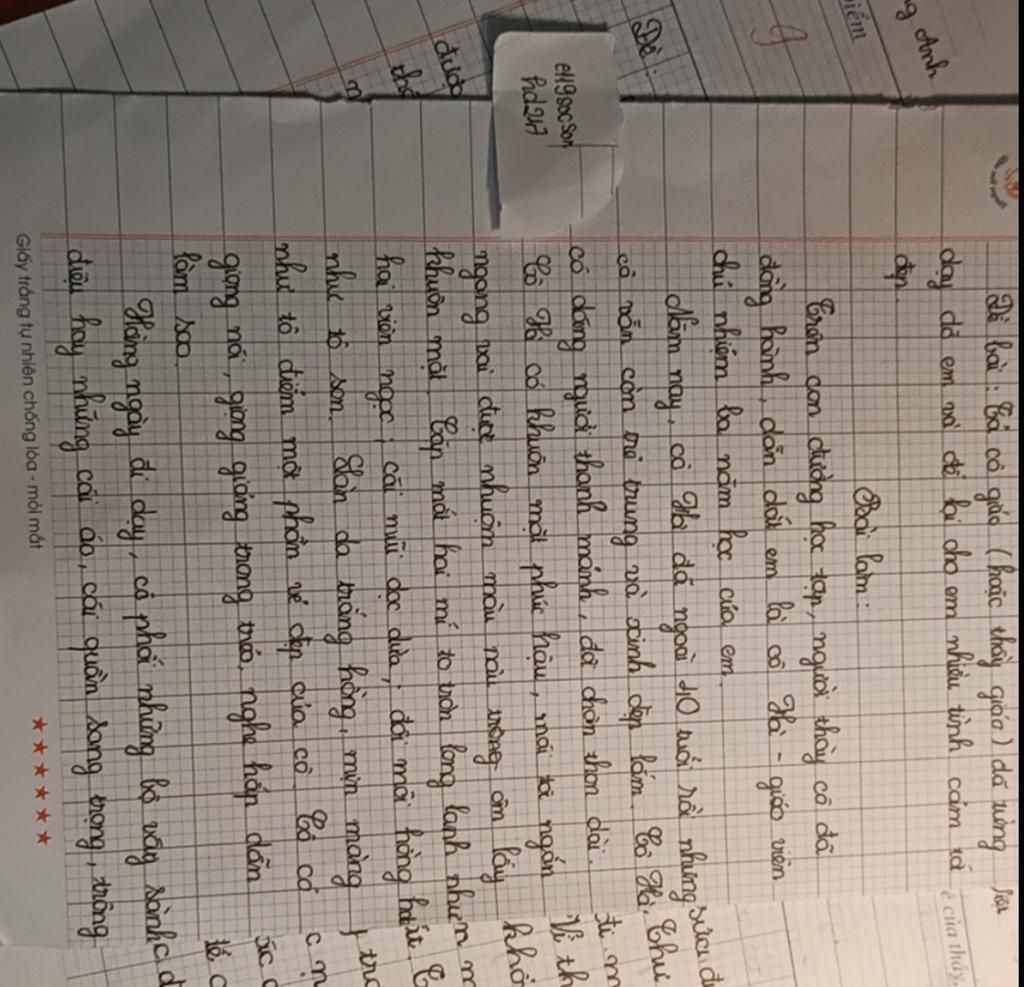 Đề bài: Tả cô giáo (hoặc thầy giáo) đã từng
dạy dỗ em và để lại cho em nhiều tình cảm tố
đẹp.
Bài làm:
Trên con đường học tạp, người thầy cô đã
đồng hành, dẫn dắt em là cô Hà - giáo viên
chủ nhiệm ba năm học của em.
Năm nay, cô Hà đã ngoài 40 tuổi rồi nhưng
cô vẫn còn trẻ trung và xinh đẹp lắm. Cô Hà
có dáng người thanh mảnh, đôi chân thon dài.
Cô Hà có khuôn mặt phúc hậu, mái tóc ngắn
ngang vai được nhuộm màu nâu trông ôm lấy
khuôn mặt. Cặp mắt hai mí to tròn long lanh như
hai viên ngọc; cái mũi dọc dừa; đôi môi hồng
như tô son. Làn da trắng hồng, mịn màng
như tô điểm một phần vẻ đẹp của cô. Cô có
giọng nói, giọng giảng trong trẻo, nghe hấp dẫn
làm sao.
Hàng ngày đi dạy, cô phối những bộ váy
điệu hay những cái áo, cái quần sang trọng, trông
e119socson
hd247
Đề:
được
thể
9
iểm
ng Anh
ẻ của thầy,
đi m
Vì th
khôn
Giấy trắng tự nhiên chống lóa - mỏi mắt